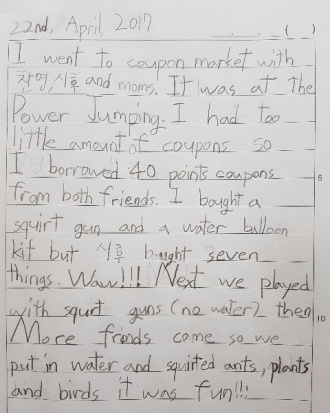 22nd, April, 2017 ( )
I went to coupon market with
찬영, 시후 and moms. It was at the
Power Jumping. I had too
little amount of coupons so
I borrowed 40 points coupons
5
from both friends. I bought a
squirt gun and a water balloon
kit but 시후 bought seven
things. Waw!!! Next we played
with squrt guns (no water) then
10
More frinds come so we
put in water and squirted ants, plants
and birds it was fun!!!